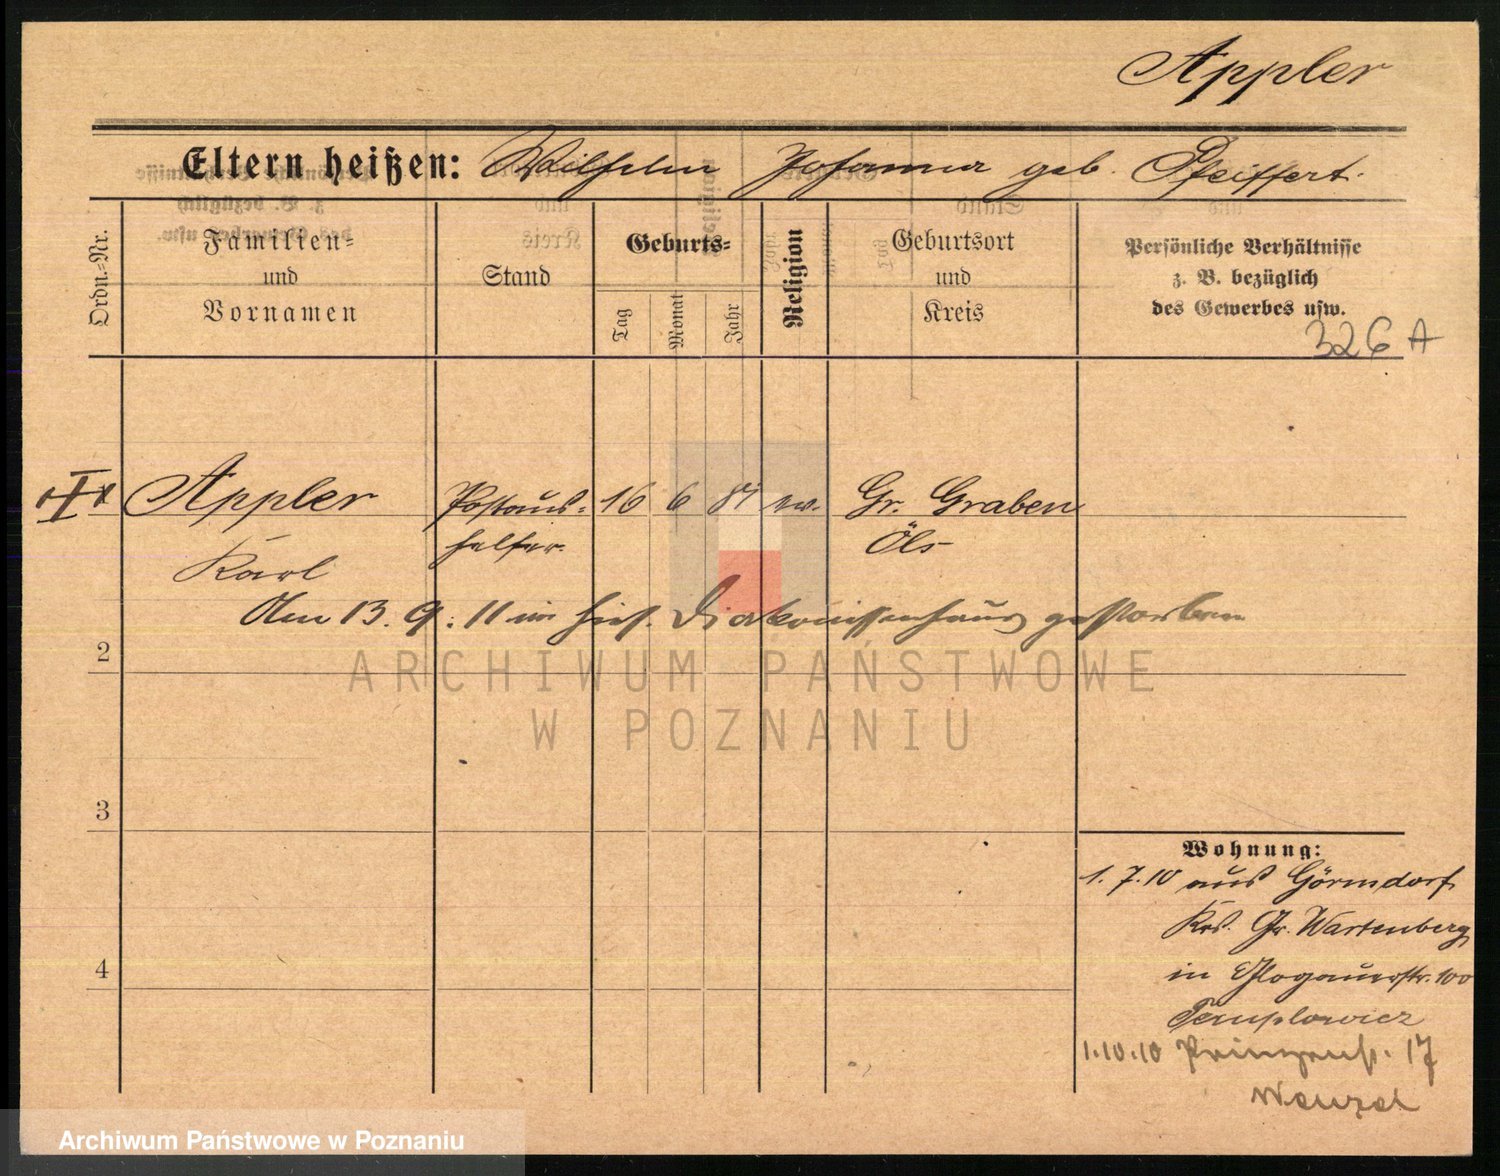 Appler
Eltern heißen: Wilhelm Johanna geb. Pfeiffert.
Ordn=Nr.
Familien=
und
Vornamen
Stand
Geburts=
Tag
Monat
Jahr
Religion
Geburtsort
und
Kreis
Persönliche Verhältnisse
z. B. bezüglich
des Gewerbes usw.
326 A
Appler Postaus= 16 6 81 ev. Gr. Graben
helfer. Öls
Karl
Am 13. 9. 11 im hies. Diakonissenhaus gestorben
2
ARCHIWUM PAŃSTWOWE
W POZNANIU
3
Wohnung:
1. 7. 10 aus Görnsdorf
Krs. Gr. Wartenberg
4
in Glogauerstr. 100
Templowicz
1.10.10 17
Wenzel
Archiwum Państwowe w Poznaniu